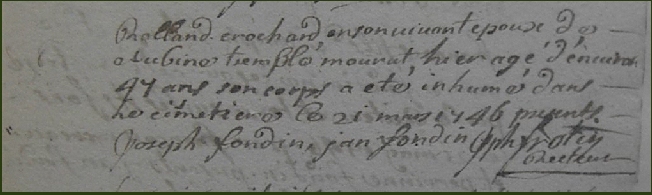 Rolland crochard en son vivant epoux de
aubine templé mourut hier agé d'environ
47 ans son corps a eté inhumé dans
ce cimetiere le 21 mars 1746 presents
Joseph fondin, jan fondin
Recteur